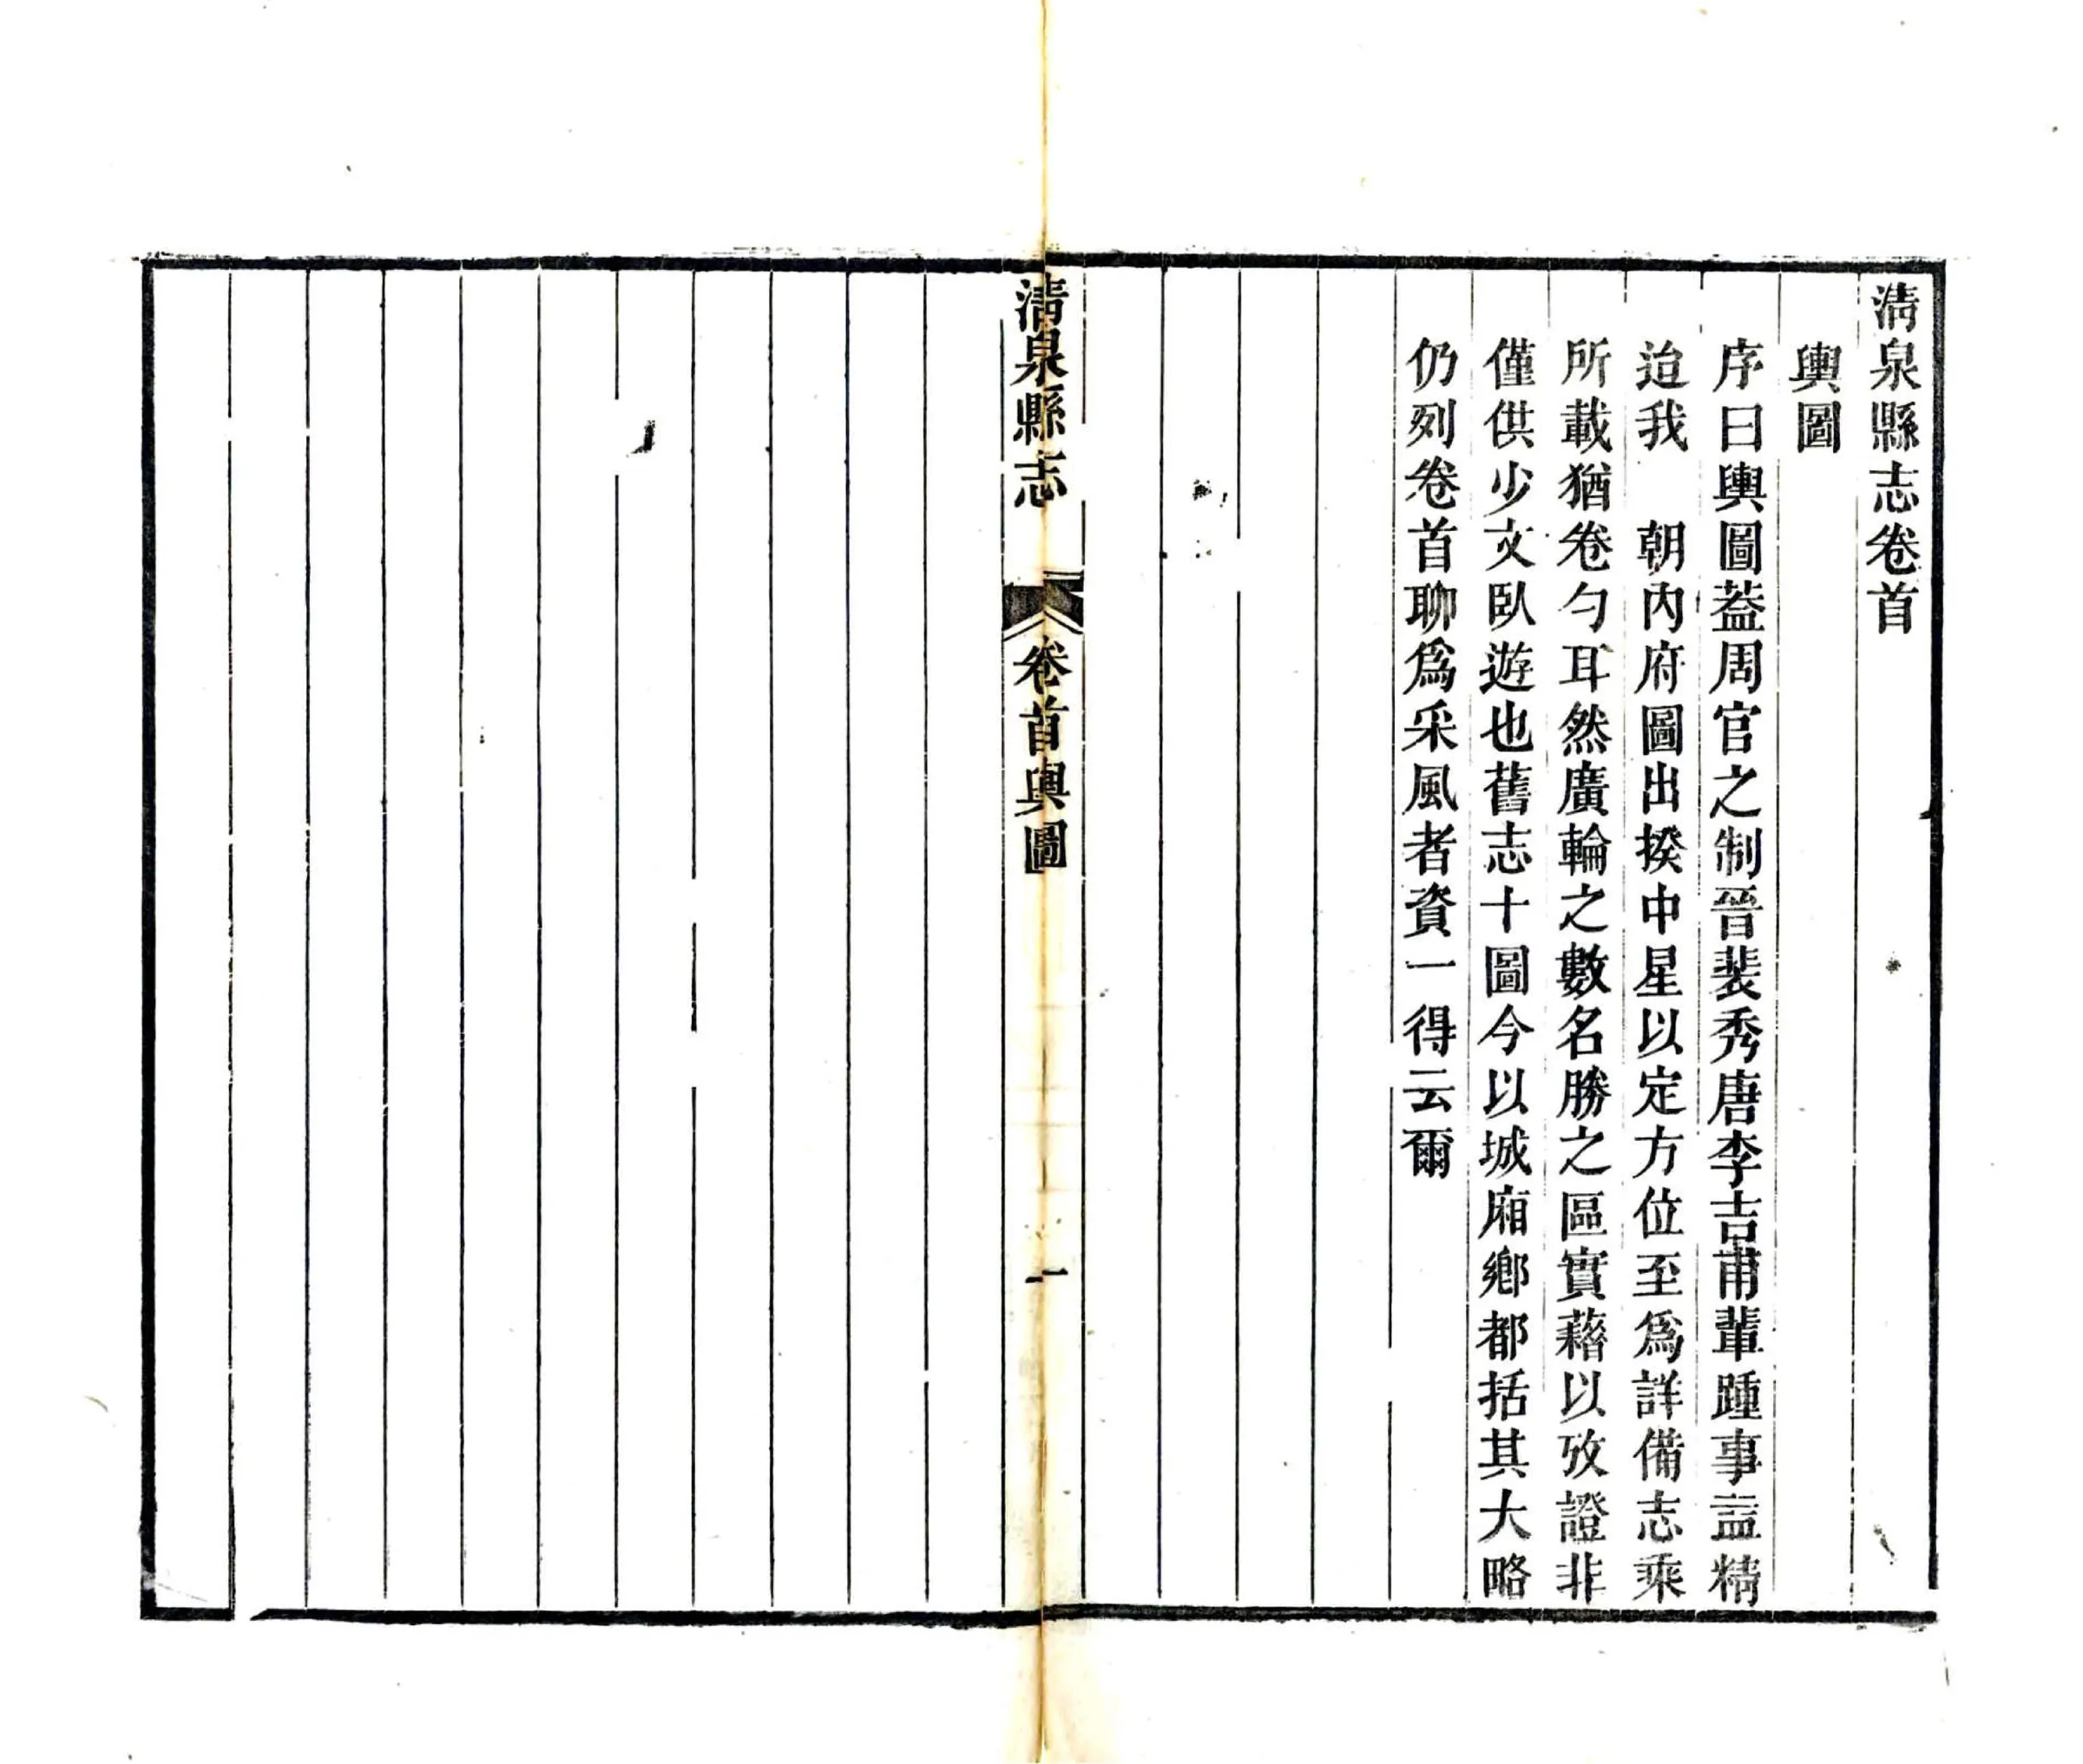 清泉縣志卷首
輿圖
序曰輿圖葢周官之制晉裴秀唐李吉甫輩踵事益精
迨我　朝內府圖出揆中星以定方位至爲詳備志乘
所載猶卷勺耳然廣輪之數名勝之區實藉以攷證非
僅供少文臥遊也舊志十圖今以城廂鄉都括其大略
仍列卷首聊爲采風者資一得云爾
清泉縣志　卷首輿圖　一